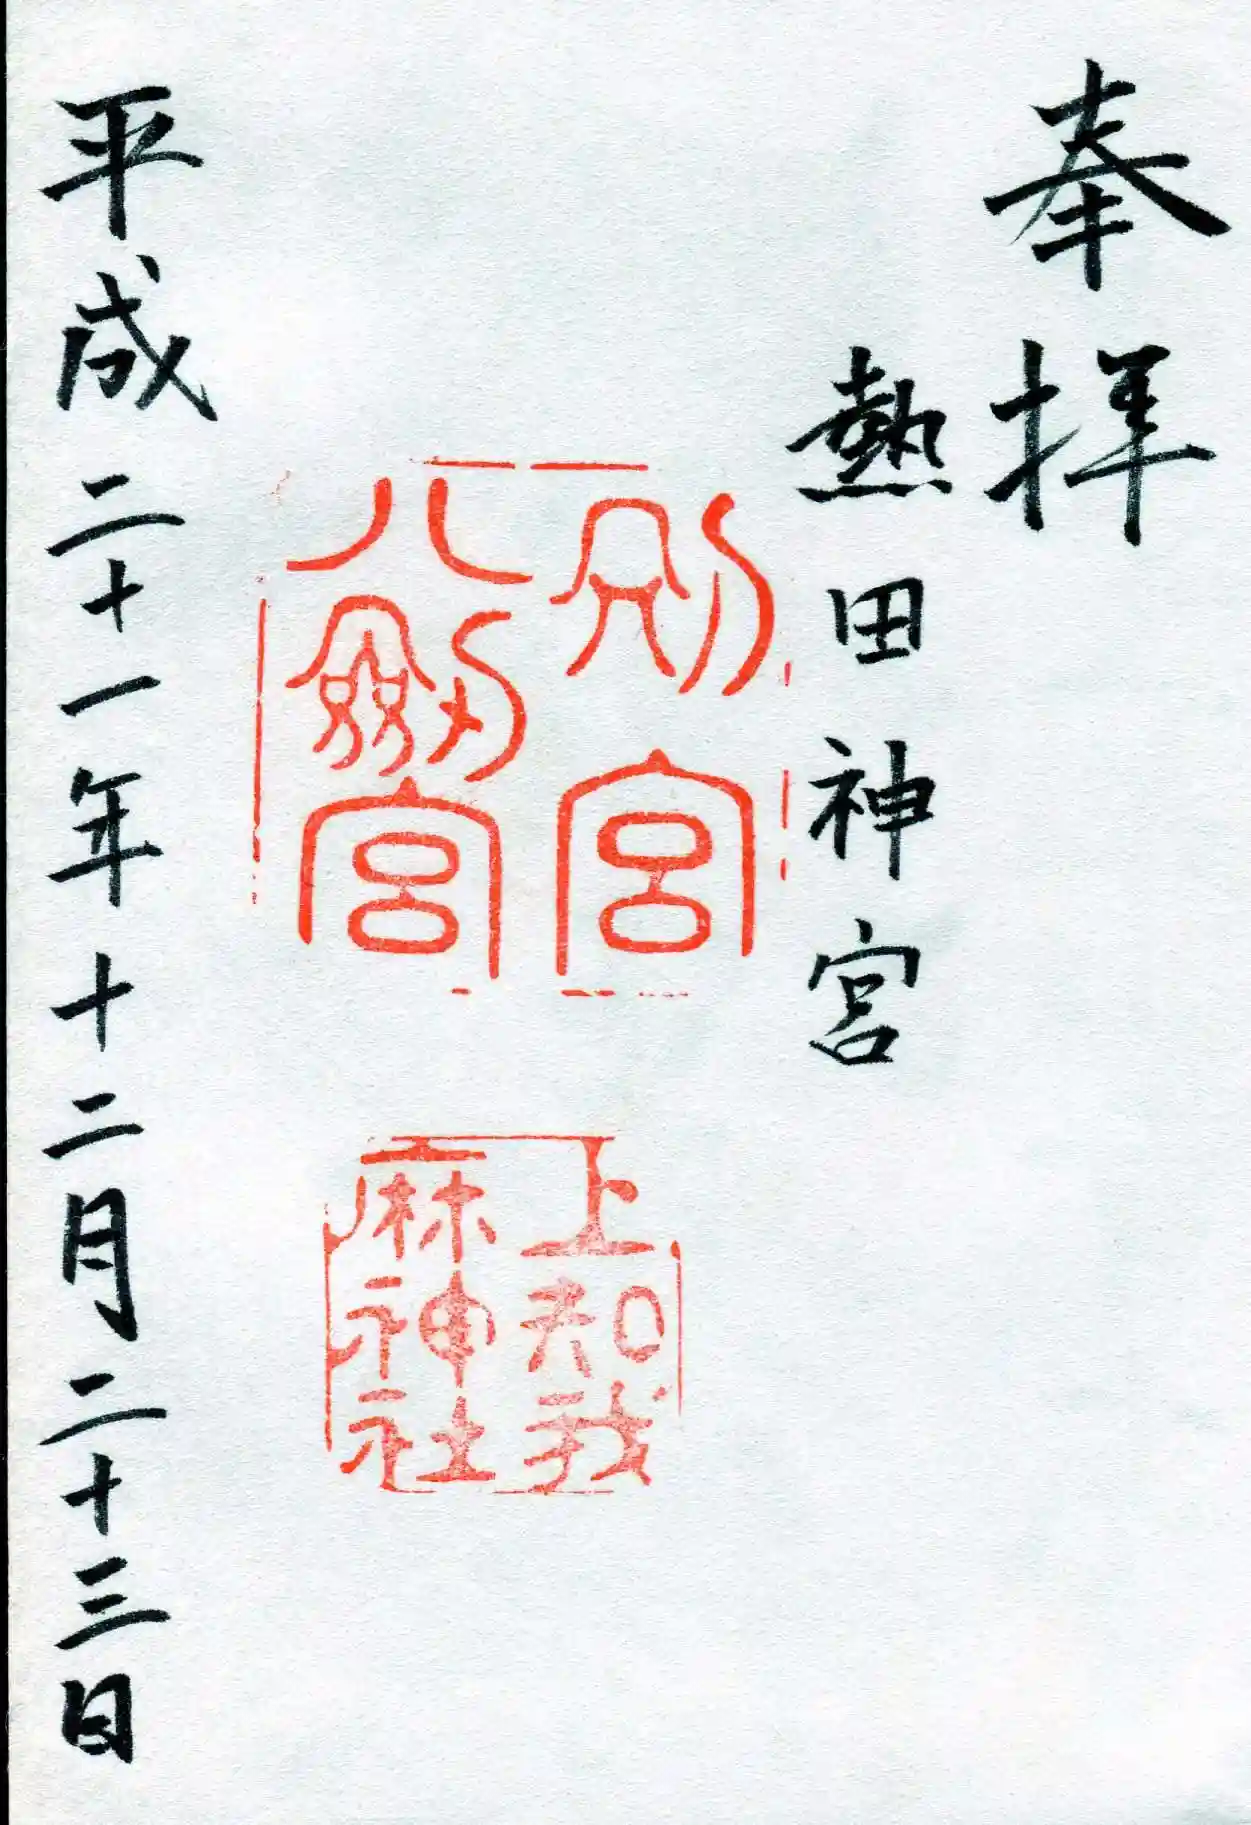 奉拝
熱田神宮
別宮
八劔宮
上知我
麻神社
平成二十一年十二月二十三日